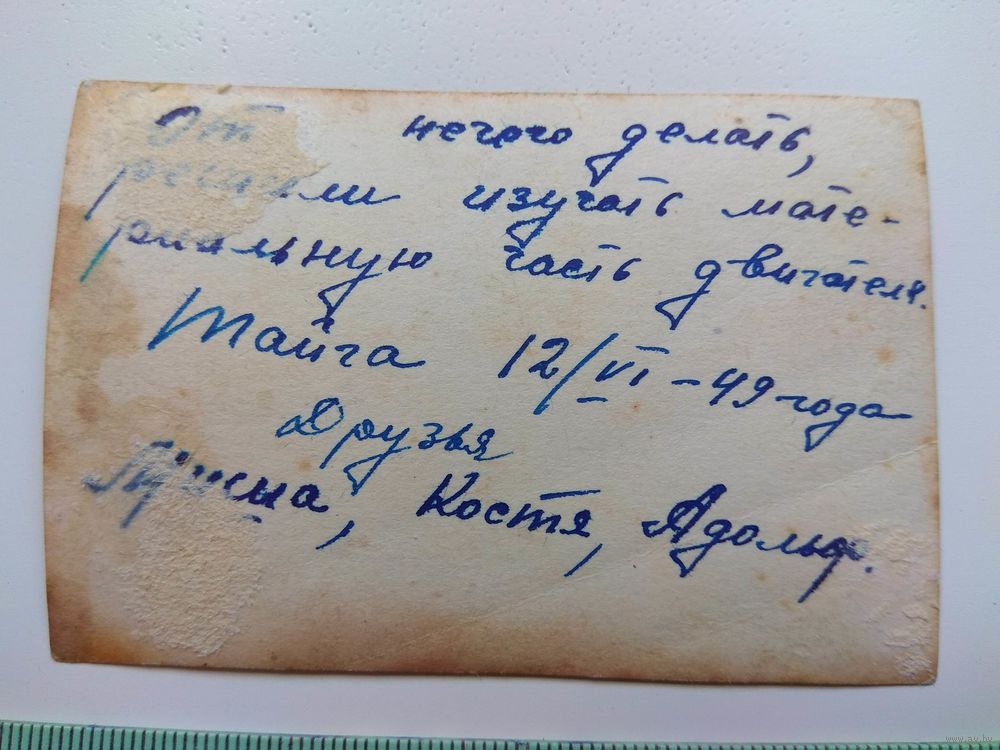 От нечего делать,
решили изучать мате-
риальную часть двигателя.
Тайга 12/VI-49 года
Друзья
Костя, Адольф.
www.av.by